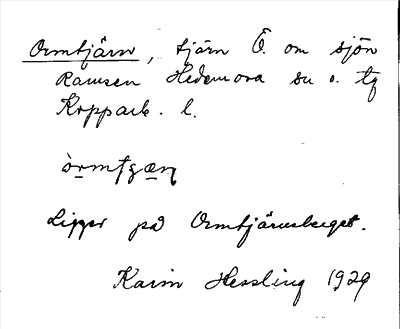 Ormtjärn, tjärn Ö. om sjön
Ramsen Hedemora sn o. tg
Kopparb. l.
Ligger på Ormtjärnsberget.
Karin Hessling 1929